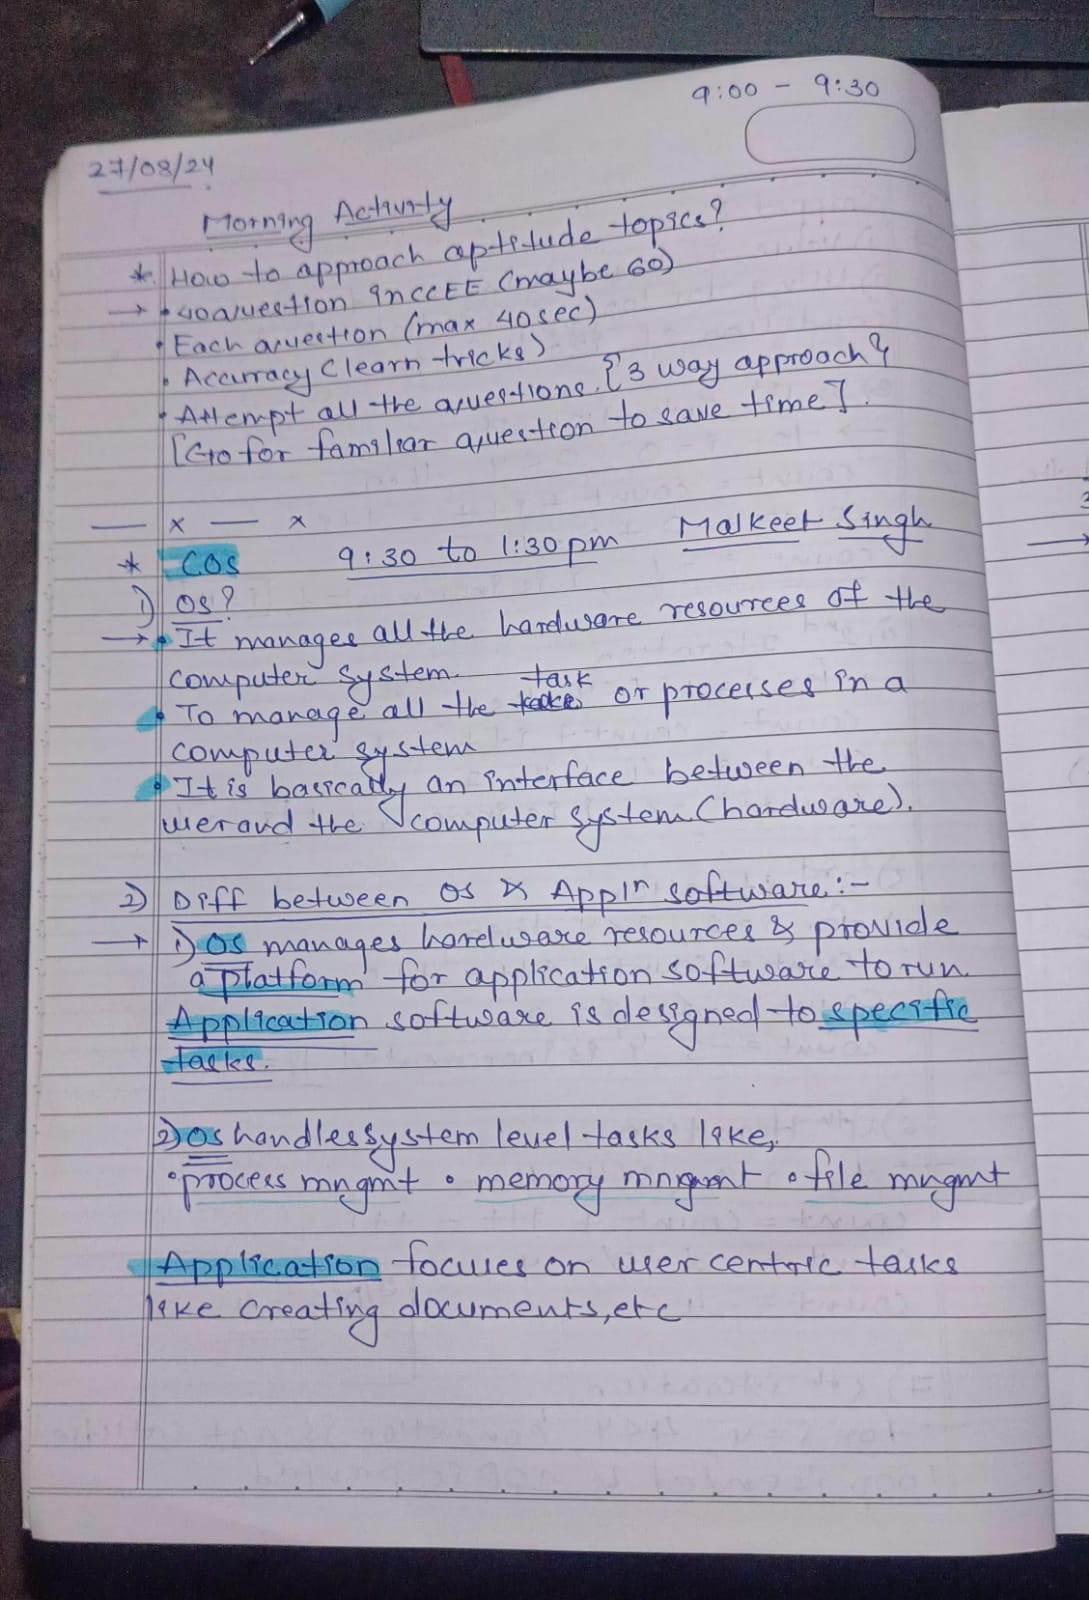 9:00 - 9:30
27/08/24
Morning Activity
* How to approach aptitude topics?
→ • 40 question in CCEE (maybe 60)
• Each question (max 40sec)
• Accurracy (learn tricks)
• Attempt all the questions. {3 way approach}
[Go for familiar question to save time].
— x — x
* COS 9:30 to 1:30 pm Malkeet Singh
1) OS?
→ • It manages all the hardware resources of the
computer system.
• To manage all the task or processes in a
computer system
• It is basically an interface between the
user and the computer system (hardware).
2) Diff between OS & Appln software:-
→ 1) OS manages hardware resources & provide
a platform for application software to run.
Application software is designed to specific
tasks.
2) OS handles system level tasks like,
• process mngmt • memory mngmnt • file mngmt
Application focuses on user centric tasks
like creating documents, etc